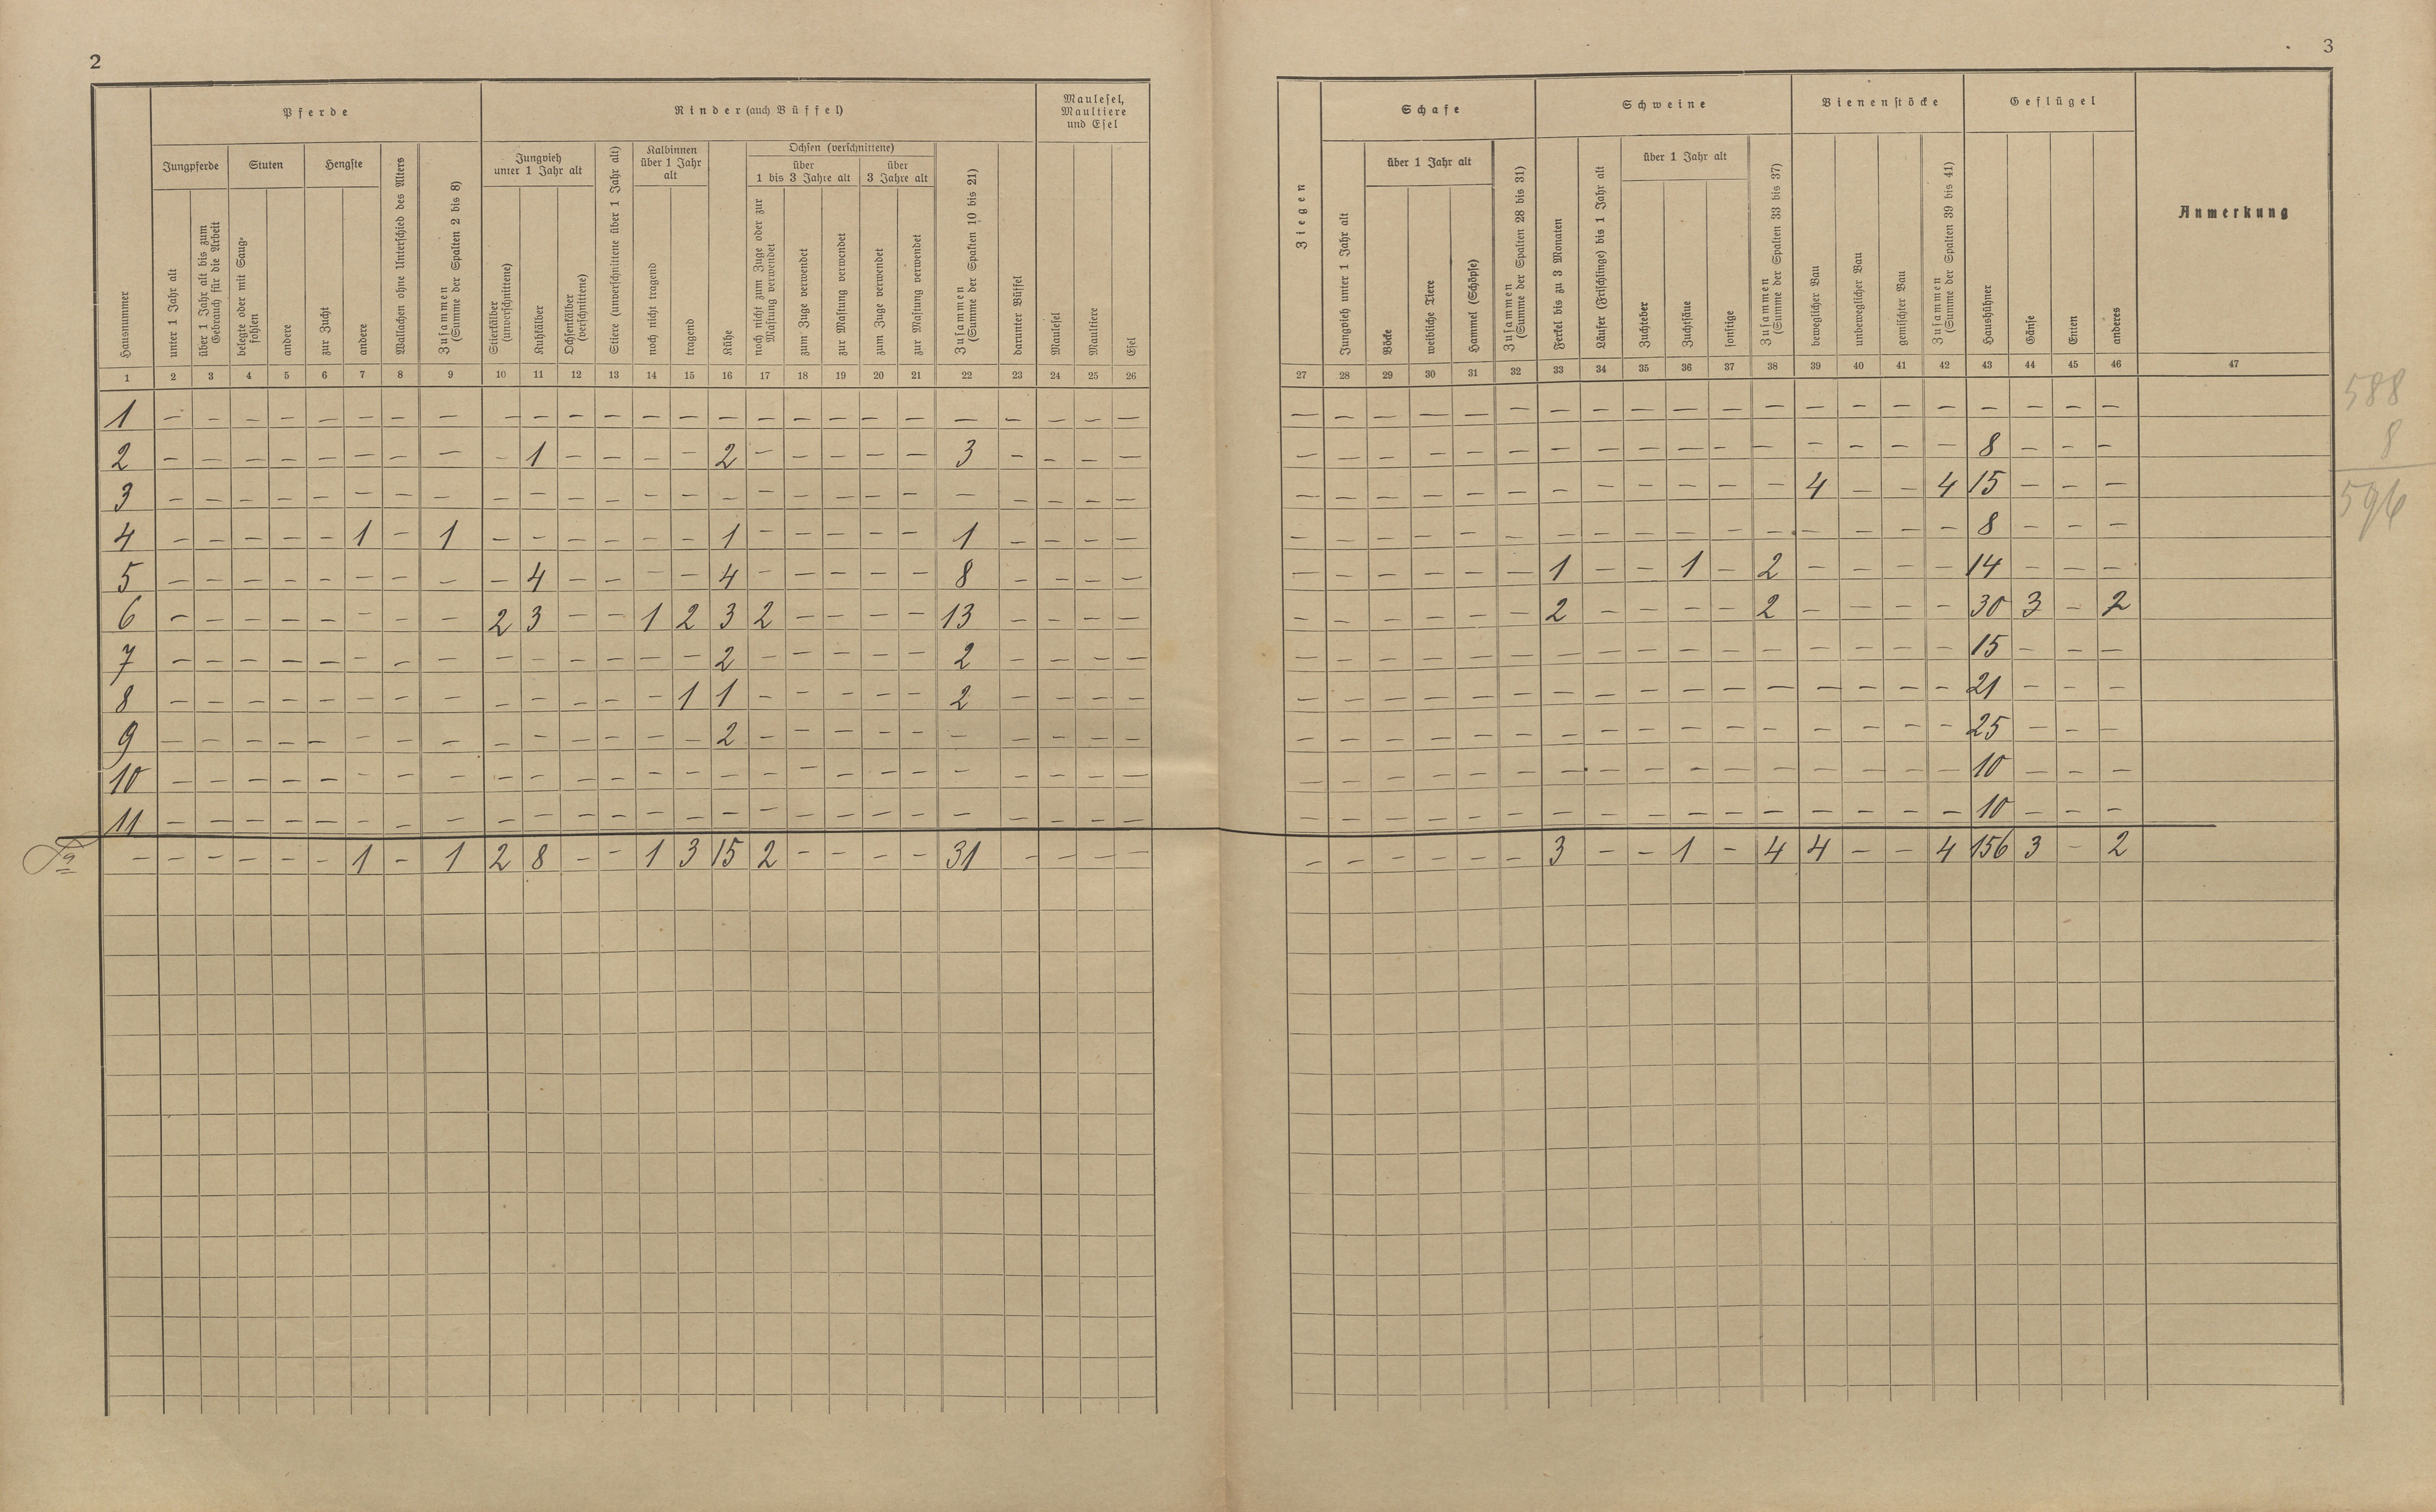 2
Pferde
Rinder (auch Büffel)
Maulesel,
Maultiere
und Esel
Jungpferde
Stuten
Hengste
Jungvieh
unter 1 Jahr alt
Kalbinnen
über 1 Jahr
alt
Ochsen (verschnittene)
über
1 bis 3 Jahre alt
über
3 Jahre alt
Hausnummer
unter 1 Jahr alt
über 1 Jahr alt bis zum
Gebrauch für die Arbeit
belegte oder mit Saug-
fohlen
andere
zur Zucht
andere
Wallachen ohne Unterschied des Alters
Zusammen
(Summe der Spalten 2 bis 8)
Stierkälber
(unverschnittene)
Kuhkälber
Ochsenkälber
(verschnittene)
Stiere (unverschnittene über 1 Jahr alt)
noch nicht tragend
tragend
Kühe
noch nicht zum Zuge oder zur
Mastung verwendet
zum Zuge verwendet
zur Mastung verwendet
zum Zuge verwendet
zur Mastung verwendet
Zusammen
(Summe der Spalten 10 bis 21)
darunter Büffel
Maulesel
Maultiere
Esel
1 2 3 4 5 6 7 8 9 10 11 12 13 14 15 16 17 18 19 20 21 22 23 24 25 26
1 – – – – – – – – – – – – – – – – – – – – – – – – –
2 – – – – – – – – – 1 – – – – 2 – – – – – 3 – – – –
3 – – – – – – – – – – – – – – – – – – – – – – – – –
4 – – – – – 1 – 1 – – – – – – 1 – – – – – 1 – – – –
5 – – – – – – – – – 4 – – – – 4 – – – – – 8 – – – –
6 – – – – – – – – 2 3 – – 1 2 3 2 – – – – 13 – – – –
7 – – – – – – – – – – – – – – 2 – – – – – 2 – – – –
8 – – – – – – – – – – – – – 1 1 – – – – – 2 – – – –
9 – – – – – – – – – – – – – – 2 – – – – – – – – – –
10 – – – – – – – – – – – – – – – – – – – – – – – – –
11 – – – – – – – – – – – – – – – – – – – – – – – – –
– – – – – 1 – 1 2 8 – – 1 3 15 2 – – – – 31 – – – –
3
Schafe
Schweine
Bienenstöcke
Geflügel
über 1 Jahr alt
über 1 Jahr alt
Ziegen
Jungvieh unter 1 Jahr alt
Böcke
weibliche Tiere
Hammel (Schöpse)
Zusammen
(Summe der Spalten 28 bis 31)
Ferkel bis zu 3 Monaten
Läufer (Frischlinge) bis 1 Jahr alt
Zuchteber
Zuchtsäue
sonstige
Zusammen
(Summe der Spalten 33 bis 37)
beweglicher Bau
unbeweglicher Bau
gemischter Bau
Zusammen
(Summe der Spalten 39 bis 41)
Haushühner
Gänse
Enten
anderes
Anmerkung
27 28 29 30 31 32 33 34 35 36 37 38 39 40 41 42 43 44 45 46 47
– – – – – – – – – – – – – – – – – – – –
– – – – – – – – – – – – – – – – 8 – – –
– – – – – – – – – – – – 4 – – 4 15 – – –
– – – – – – – – – – – – – – – – 8 – – –
– – – – – – 1 – – 1 – 2 – – – – 14 – – –
– – – – – – 2 – – – – 2 – – – – 30 3 – 2
– – – – – – – – – – – – – – – – 15 – – –
– – – – – – – – – – – – – – – – 21 – – –
– – – – – – – – – – – – – – – – 25 – – –
– – – – – – – – – – – – – – – – 10 – – –
– – – – – – – – – – – – – – – – 10 – – –
– – – – – – 3 – – 1 – 4 4 – – 4 156 3 – 2
588
8
596